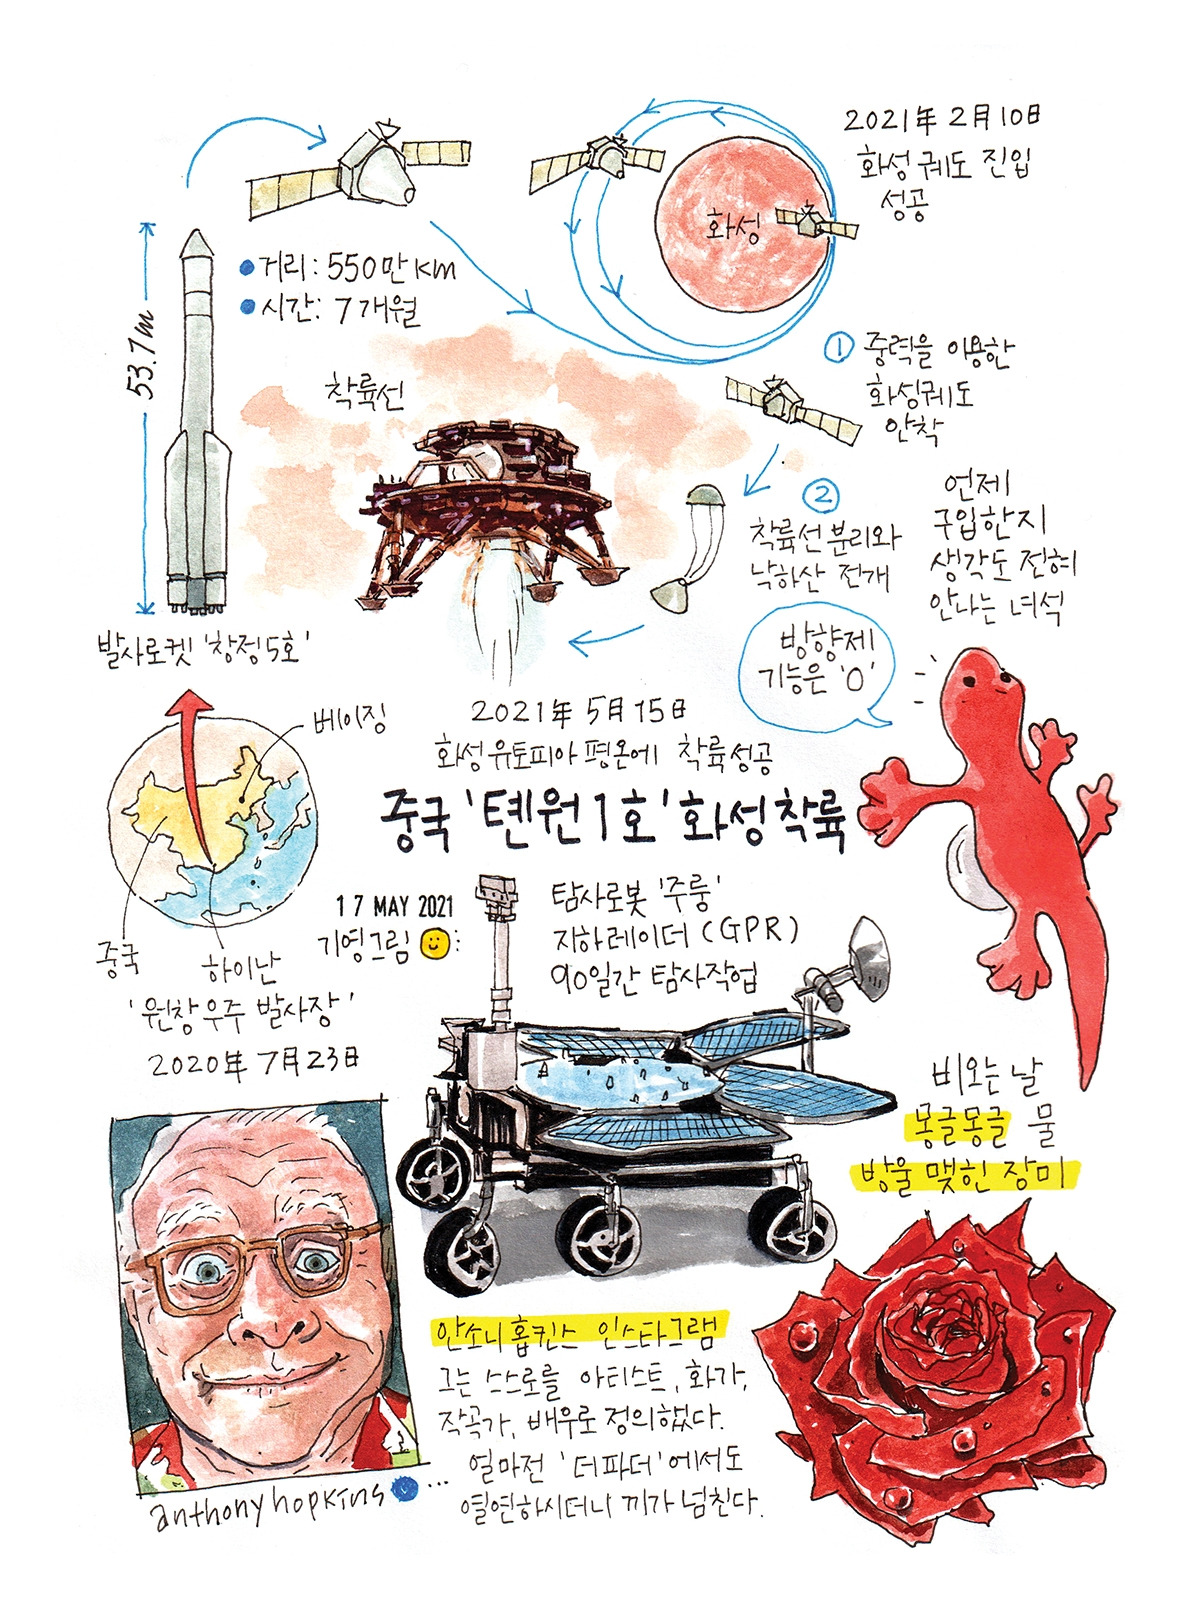 2021年 2月 10日
화성 궤도 진입
성공
화성
53.7m
거리: 550만 KM
시간: 7개월
착륙선
① 중력을 이용한
화성궤도
안착
②
착륙선 분리와
낙하산 전개
언제
구입한지
생각도 전혀
안나는 녀석
방향제
기능은 '0'
발사로켓 '창정5호'
베이징
2021年 5月 15日
화성 유토피아 평온에 착륙성공
중국 '텐원1호' 화성착륙
17 MAY 2021
기영그림 :
탐사로봇 '주룽'
지하레이더 (GPR)
90일간 탐사작업
중국
하이난
'원창우주 발사장'
2020年 7月 23日
비오는 날
몽글몽글 물
방울 맺힌 장미
안소니홉킨스 인스타그램
그는 스스로를 아티스트, 화가,
작곡가, 배우로 정의했다.
얼마전 '더파더'에서도
열연하시더니 끼가 넘친다.
anthony hopkins ...